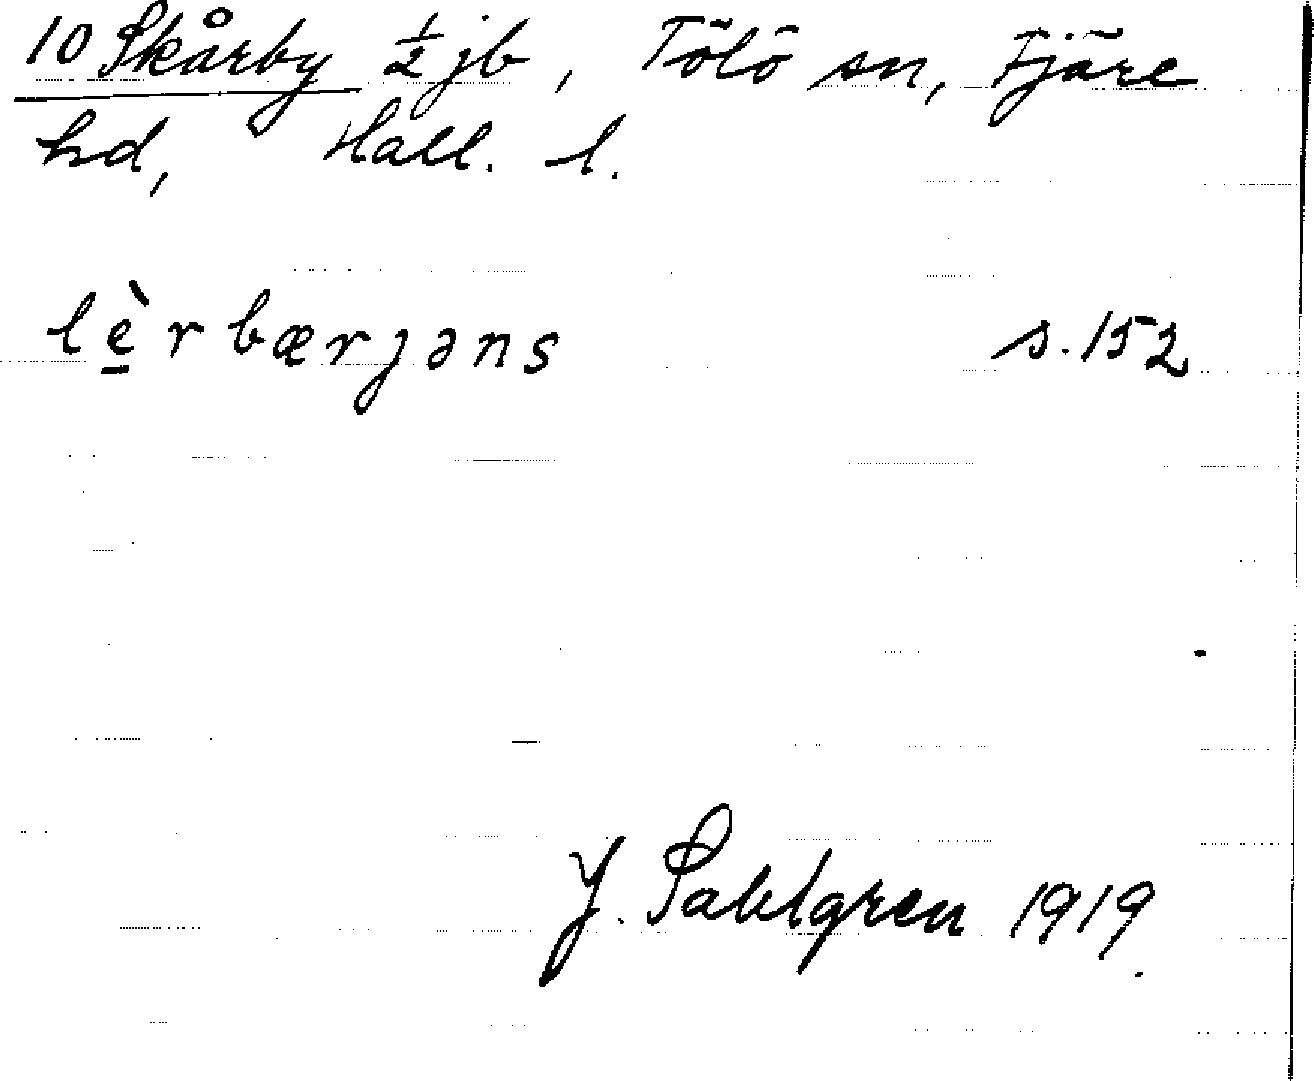 10 Skårby ½ jb, Tölö sn, Fjäre
hd, Hall. l.
lè̱rbærjəns s. 152
J. Sahlgren 1919.